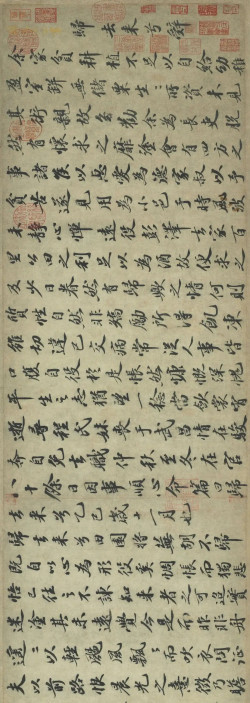 歸去来兮辭
余家貧耕植不足以自給幼稚
盈室缾無儲粟生〻所資未見
其術親故多勸余為長吏脫
然有懷求之靡塗會有四方之
事諸侯以惠愛為德家叔以予
貧苦遂見用為小邑于時風波
未靜心憚遠役彭澤去家百
里公田之利足以為酒故便求之
及少日眷然有歸歟之情何則
質性自然非矯勵所得飢凍
雖切違己交病嘗從人事皆
口腹自役於是悵然慷慨深愧
平生之志猶望一稔當斂裳宵
逝尋程氏妹喪于武昌情在駿
奔自免去職仲秋至冬在官
八十餘日因事順心命篇曰歸
去来兮乙巳歲十一月也
歸去来兮田園將蕪胡不歸
既自以心為形役奚惆悵而獨悲
悟已往之不諫知来者之可追實
迷塗其未遠覺今是而昨非舟
遙〻以輕颺風飄〻而吹衣問征
夫以前路恨晨光之熹微乃瞻